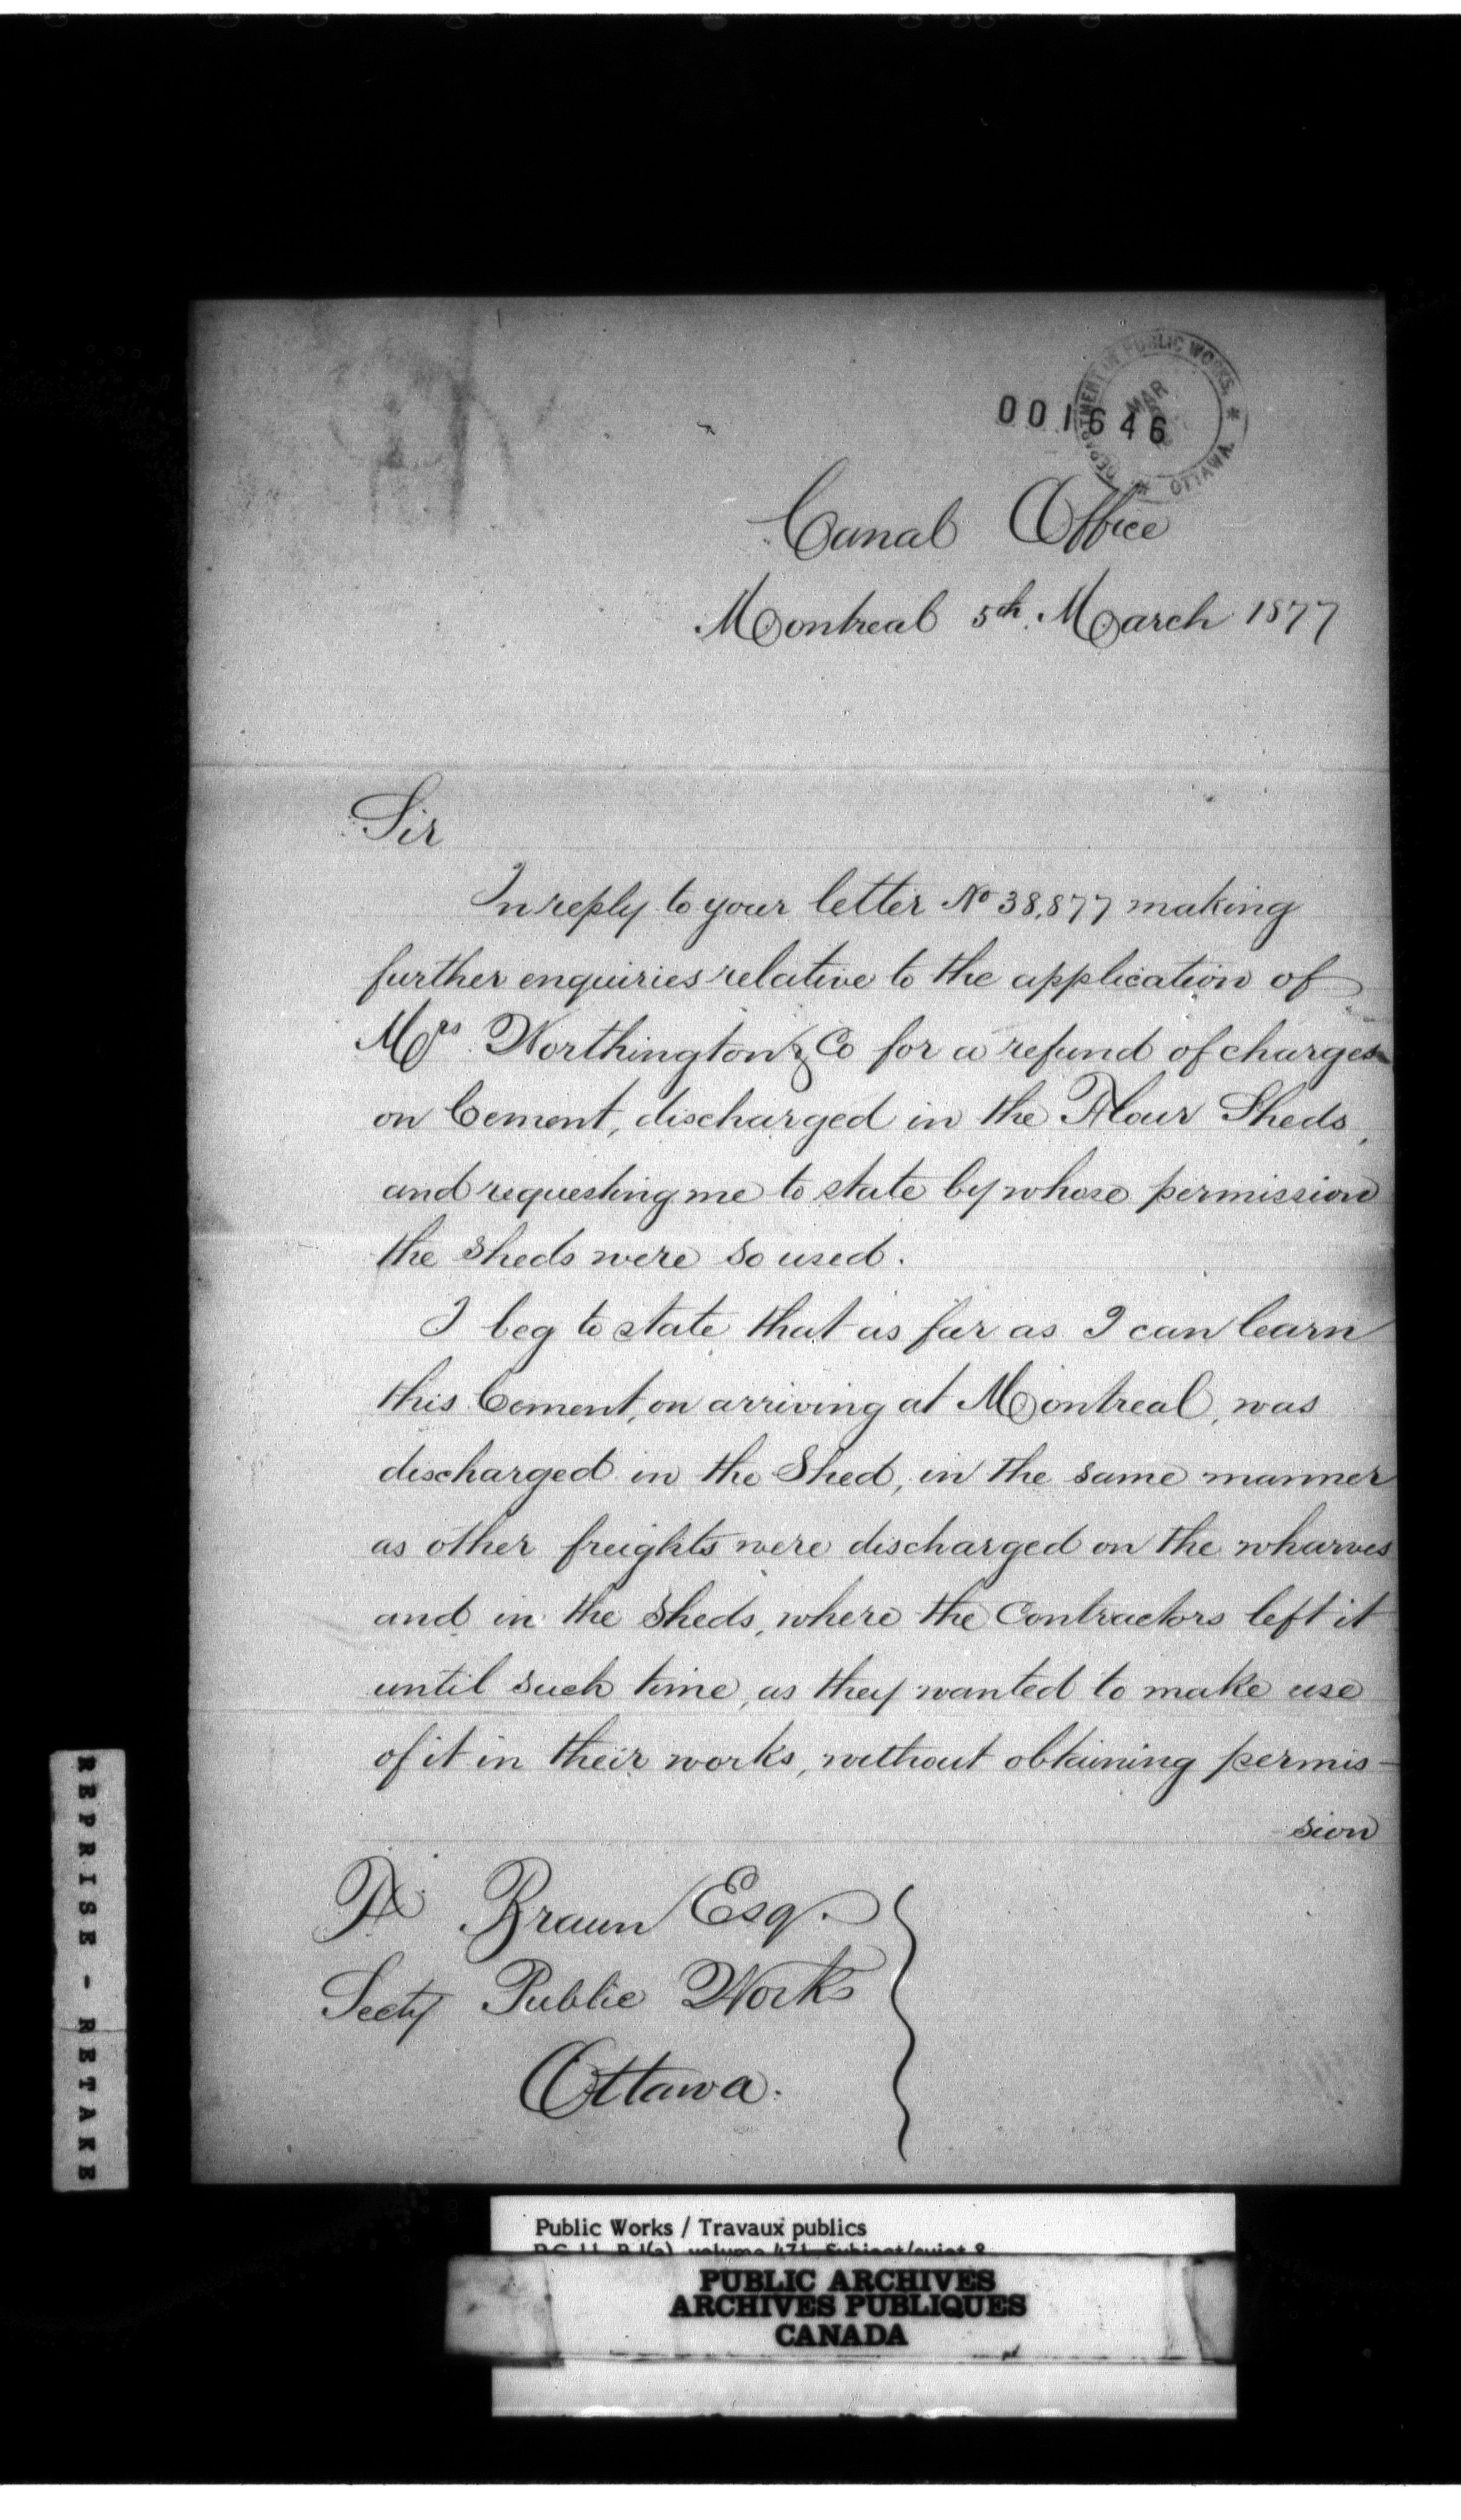 DEPARTMENT OF PUBLIC WORKS.
MAR
OTTAWA.
001646
Canal Office
Montreal 5th. March 1877
Sir
In reply to your letter No 38,877 making
further enquiries relative to the application of
Mrs. Worthington & Co for a refund of charges
on Cement, discharged in the Flour Sheds,
and requesting me to state by whose permission
the Sheds were so used.
I beg to state that as far as I can learn
this Cement, on arriving at Montreal, was
discharged in the Shed, in the same manner
as other freights were discharged on the wharves
and in the Sheds, where the Contractors left it
until such time, as they wanted to make use
of it in their works, without obtaining permis-
sion
F Braun Esq.
Secty Public Works
Ottawa.
REPRISE - RETAKE
Public Works / Travaux publics
PUBLIC ARCHIVES
ARCHIVES PUBLIQUES
CANADA